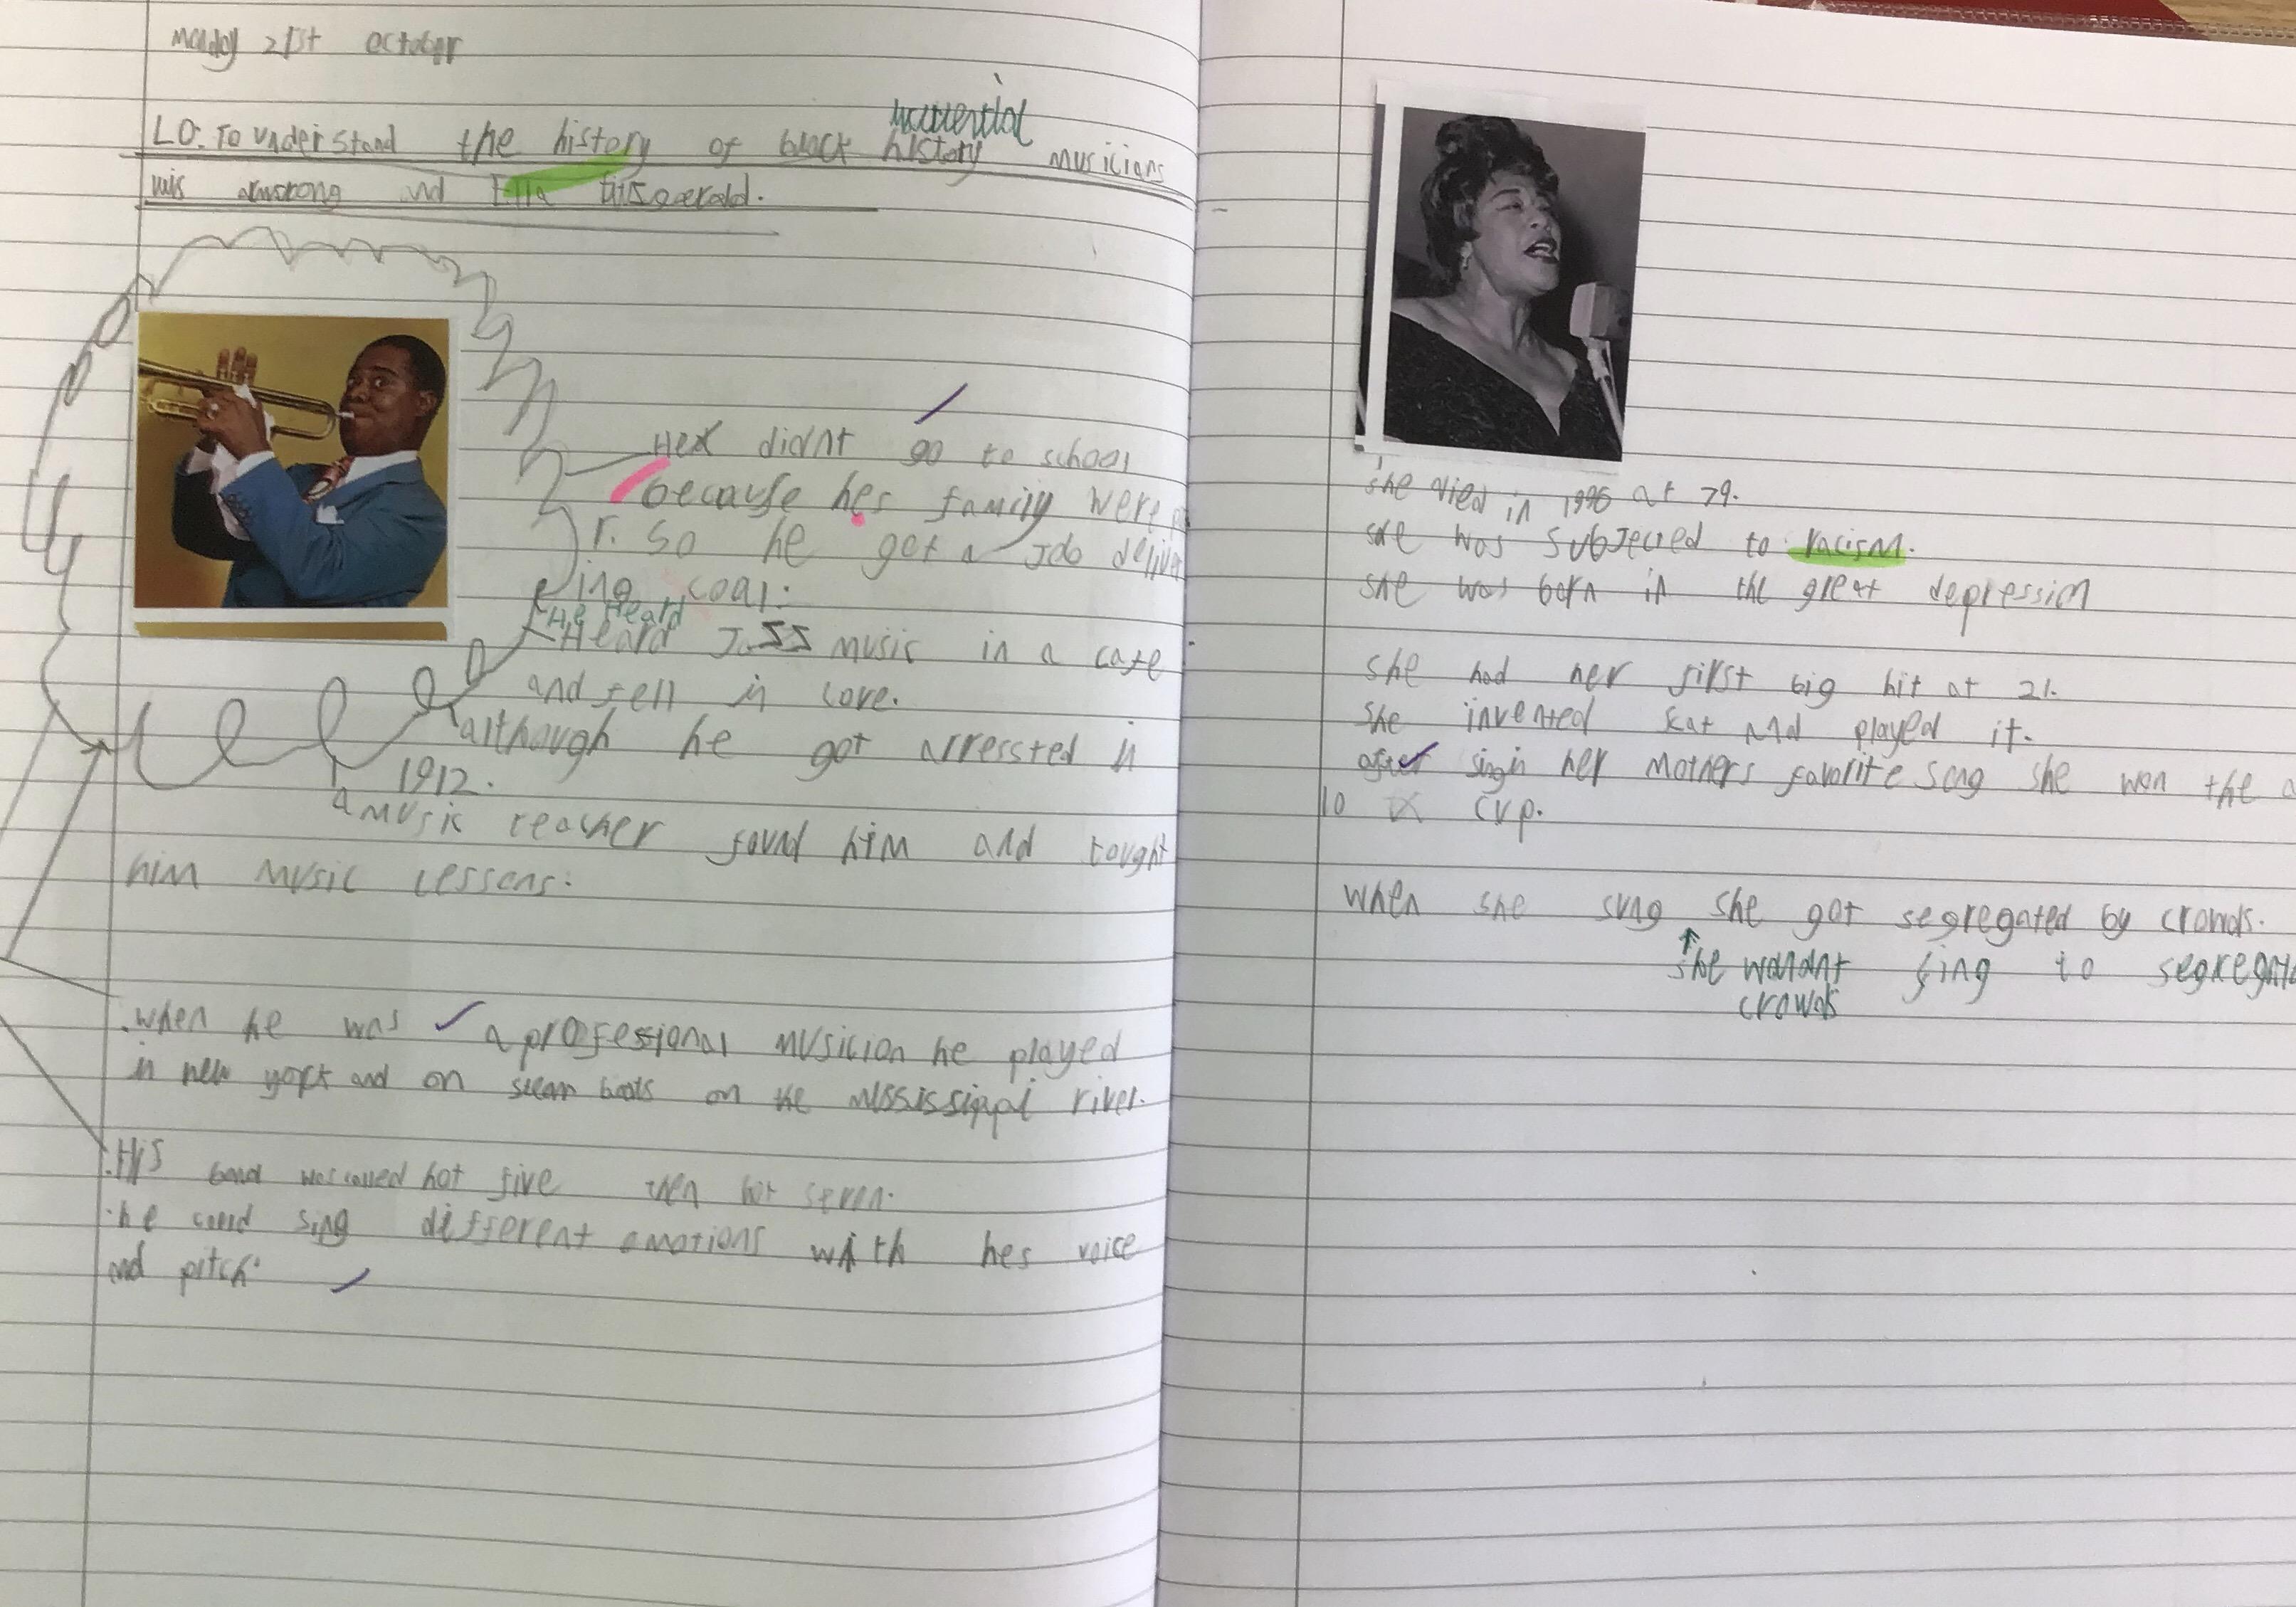 Monday 21st october
influential
LO: To understand the history of black history musicians
luis armstrong and Ella fitzgerald.
He didnt go to school
because hes family were
r. So he got a Job deliver
ing coal.
He Heard
Heard Jazz music in a cafe
and fell in love.
although he got arressted in
1912.
a music teacher found him and tought
him music lessons.
.when he was a professional musician he played
in new york and on steam boats on the mississippi river.
.His band was called hot five then hot seven.
.he could sing different emotions with hes voice
and pitch.
she died in 1996 at 79.
she was subjected to racism.
she was born in the great depression
she had her first big hit at 21.
she invented scat and played it.
after singin her mothers favorite song she won the
10 cup.
when she sung she got segregated by crowds.
she wouldnt sing to segregate
crowds